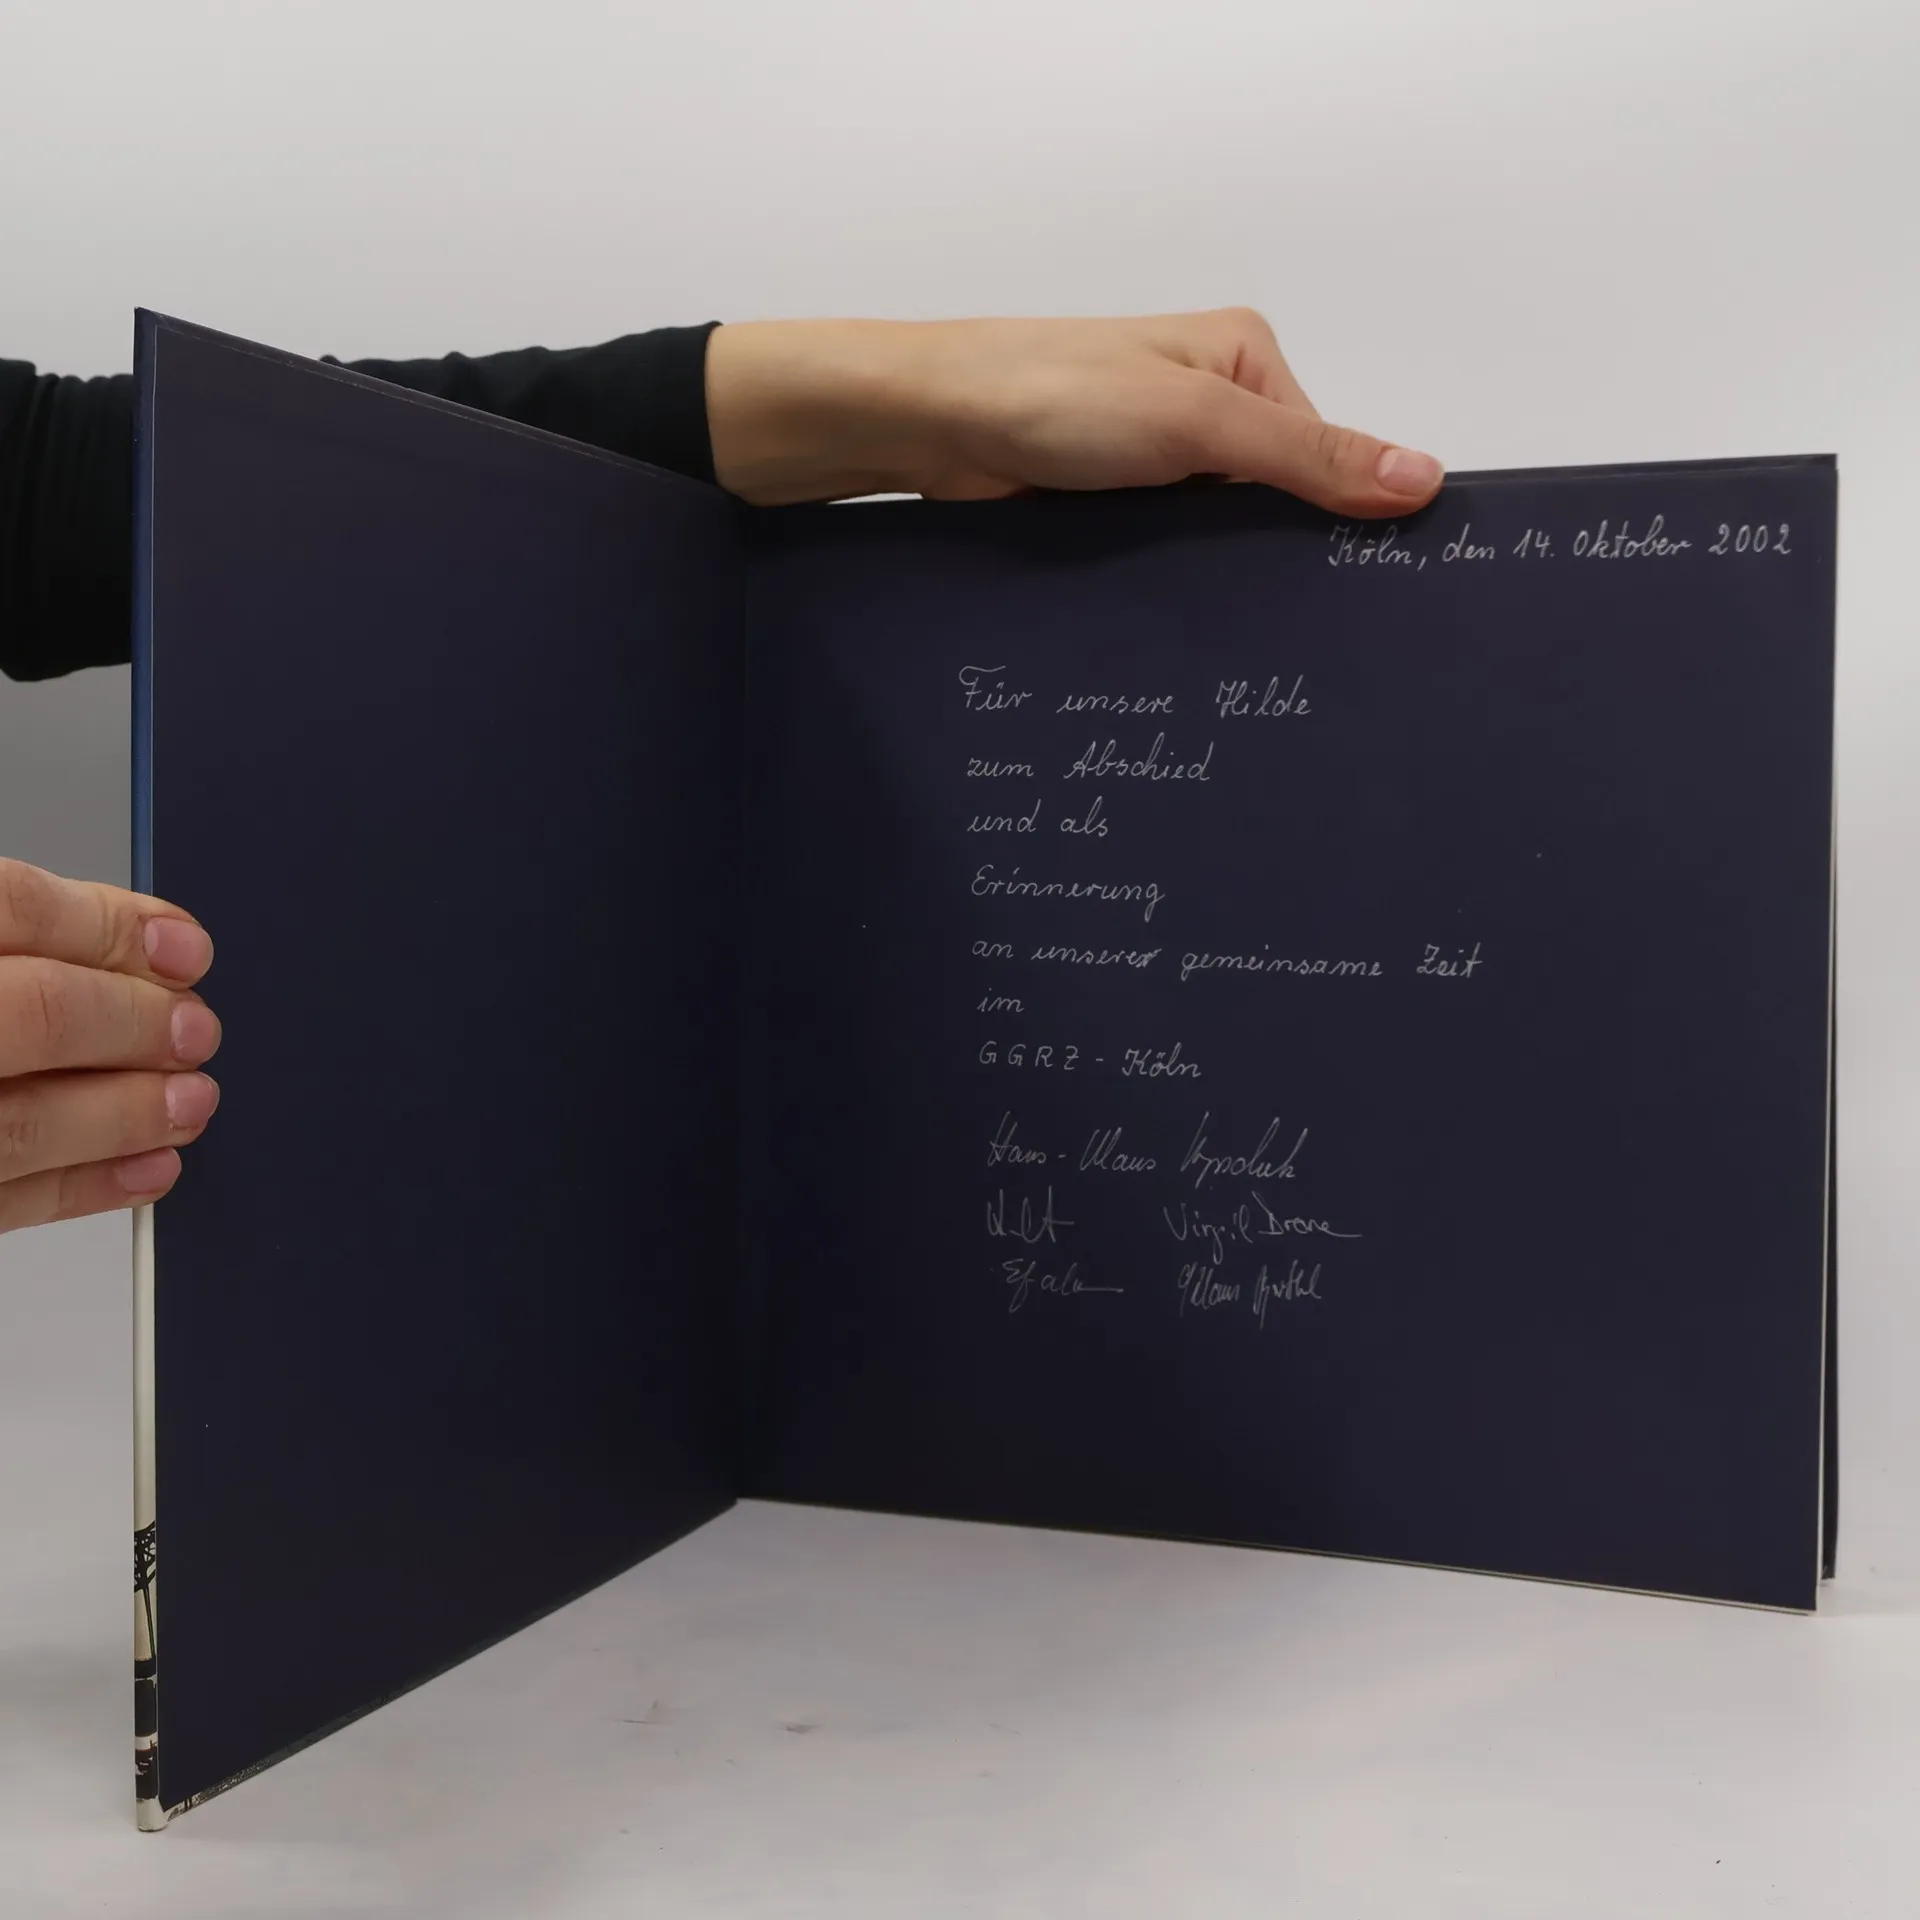 Köln, den 14. Oktober 2002
Für unsere Hilde
zum Abschied
und als
Erinnerung
an unsere gemeinsame Zeit
im
GGRZ - Köln
Hans-Klaus
Virgil
Klaus